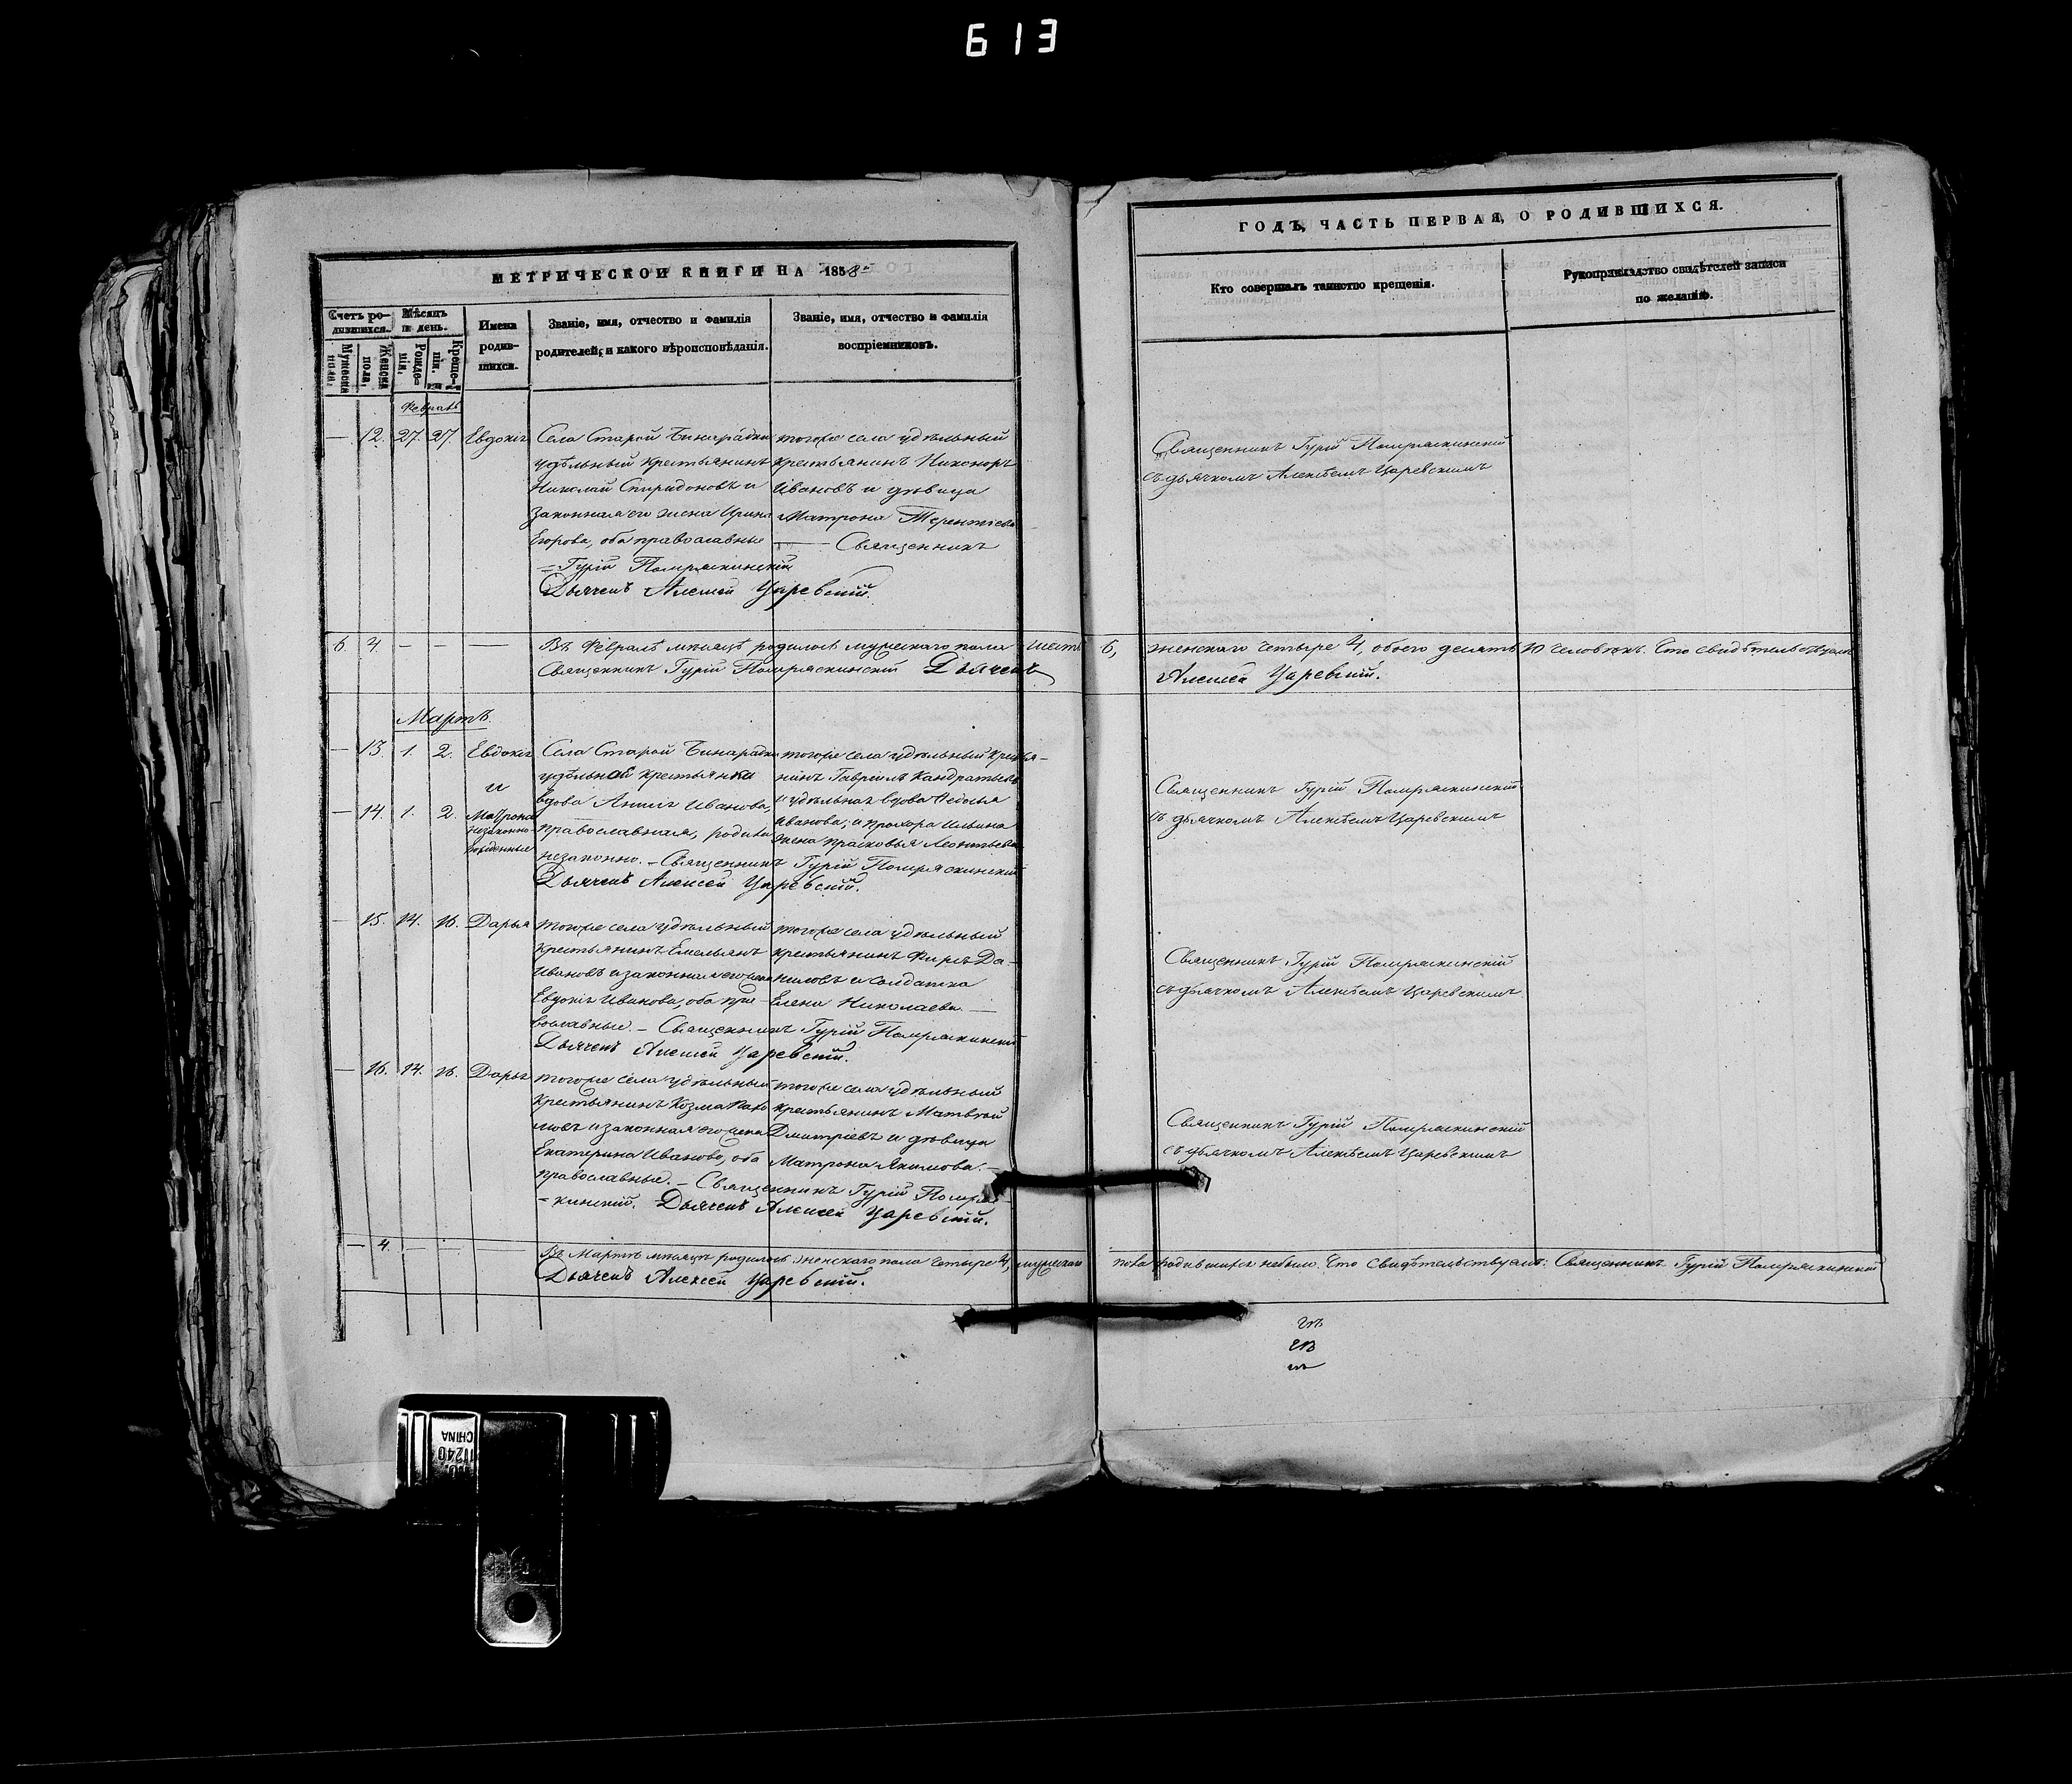 613
МЕТРИЧЕСКОЙ КНИГИ НА 1858
ГОДЪ, ЧАСТЬ ПЕРВАЯ, О РОДИВШИХСЯ.
Счетъ ро-
дившихся.
Мужеска
пола.
Женска
пола.
Мѣсяцъ
и день.
Рожде-
нія.
Креще-
нія.
Имена
родив-
шихся.
Званіе, имя, отчество и фамилія
родителей, и какого вѣроисповѣданія.
Званіе, имя, отчество и фамилія
воспріемниковъ.
Кто совершалъ таинство крещенія.
Рукоприкладство свидѣтелей записи
по желанію.
Февраль
— 12. 27. 27. Евдокія
Села Старой Бинарадки
удѣльный крестьянинъ
Николай Спиридоновъ и
законная его жена Ирина
Егорова, оба православные
тогоже села удѣльный
крестьянинъ Никоноръ
Ивановъ и дѣвица
Матрона Терентіева
— Священникъ
Гурій Помряскинскій
Дьячекъ Алексей Царевскій.
Священникъ Гурій Помряскинскій
съ дьячкомъ Алексѣемъ Царевскимъ
6. 4. — — —
Въ Февралѣ мѣсяцѣ родилось мужескаго пола шесть 6, женскаго четыре 4, обоего десять 10 человѣкъ. Что свидѣтельствуемъ
Священникъ Гурій Помряскинскій Дьячекъ Алексей Царевскій.
Мартъ.
— 13. 1. 2. Евдокія
и
— 14. 1. 2. Матрона
незаконно-
рожденные
Села Старой Бинарадки
удѣльной крестьянки
вдова Анисія Иванова,
православная, родила
незаконно. — Священникъ Гурій Помряскинскій
Дьячекъ Алексей Царевскій.
тогоже села удѣльный крестья-
нинъ Гавріилъ Кандратьевъ
и удѣльная вдова Федосья
Иванова; и Прохора Ильина
жена Прасковья Леонтьева
Священникъ Гурій Помряскинскій
съ дьячкомъ Алексѣемъ Царевскимъ
— 15. 14. 16. Дарья
тогоже села удѣльный
крестьянинъ Емельянъ
Ивановъ и законная его жена
Евдокія Иванова, оба пра-
вославные. — Священникъ Гурій Помряскинскій
Дьячекъ Алексей Царевскій.
тогоже села удѣльный
крестьянинъ Фирсъ Да-
ниловъ и солдатка
Елена Николаева. —
Священникъ Гурій Помряскинскій
съ дьячкомъ Алексѣемъ Царевскимъ
— 16. 14. 16. Дарья
тогоже села удѣльный
крестьянинъ Козма
и законная его жена
Екатерина Иванова, оба
православные. — Священникъ Гурій Помряс-
кинскій. Дьячекъ Алексей Царевскій.
тогоже села удѣльный
крестьянинъ Матвей
Дмитріевъ и дѣвица
Матрона Якимова. —
Священникъ Гурій Помряскинскій
съ дьячкомъ Алексѣемъ Царевскимъ
— 4. — — —
Въ Мартѣ мѣсяцѣ родилось женскаго пола четыре 4, мужескаго пола родившихся небыло. Что свидѣтельствуемъ: Священникъ Гурій Помряскинскій
Дьячекъ Алексей Царевскій.
11240
CHINA